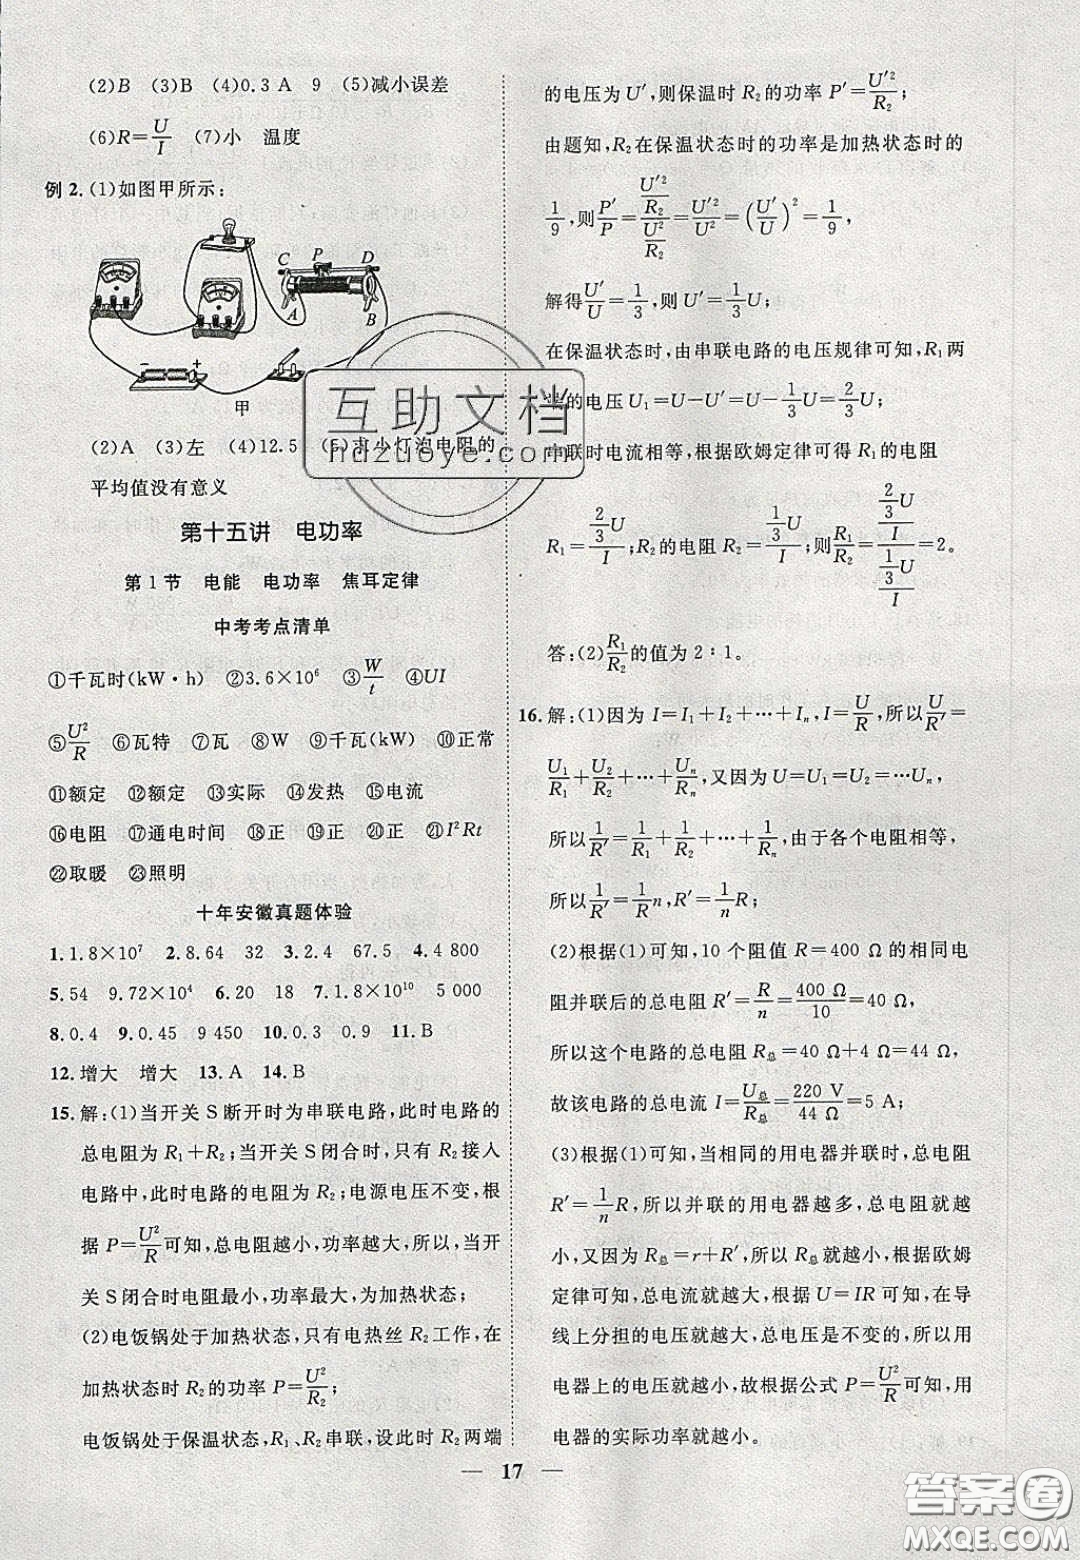 (2)B (3)B (4)0.3 A 9 (5)减小误差
(6)R=U/I (7)小 温度
例 2. (1)如图甲所示:
C P D
A B
甲
(2)A (3)左 (4)12.5 (5)求小灯泡电阻的
平均值没有意义
第十五讲 电功率
第 1 节 电能 电功率 焦耳定律
中考考点清单
①千瓦时(kW·h) ②3.6×10⁶ ③W/t ④UI
⑤U²/R ⑥瓦特 ⑦瓦 ⑧W ⑨千瓦(kW) ⑩正常
⑪额定 ⑫额定 ⑬实际 ⑭发热 ⑮电流
⑯电阻 ⑰通电时间 ⑱正 ⑲正 ⑳正 ㉑I²Rt
㉒取暖 ㉓照明
十年安徽真题体验
1.1.8×10⁷ 2.8.64 32 3.2.4 67.5 4.4 800
5.54 9.72×10⁴ 6.20 18 7.1.8×10¹⁰ 5 000
8.0.4 9.0.45 9 450 10.0.3 0.9 11.B
12.增大 增大 13.A 14.B
15.解:(1)当开关 S 断开时为串联电路,此时电路的
总电阻为 R₁+R₂;当开关 S 闭合时,只有 R₂ 接入
电路中,此时电路的电阻为 R₂;电源电压不变,根
据 P=U²/R可知,总电阻越小,功率越大,所以,当开
关 S 闭合时电阻最小,功率最大,为加热状态;
(2)电饭锅处于加热状态,只有电热丝 R₂ 工作,在
加热状态时 R₂ 的功率 P=U²/R₂;
电饭锅处于保温状态,R₁、R₂ 串联,设此时 R₂ 两端
的电压为 U′,则保温时 R₂ 的功率 P′=U′²/R₂;
由题知,R₂ 在保温状态时的功率是加热状态时的
1/9,则P′/P=(U′²/R₂)/(U²/R₂)=U′²/U²=(U′/U)²=1/9,
解得U′/U=1/3,则 U′=1/3U;
在保温状态时,由串联电路的电压规律可知,R₁ 两
端的电压 U₁=U−U′=U−1/3U=2/3U;
串联时电流相等,根据欧姆定律可得 R₁ 的电阻
R₁=(2/3U)/I;R₂ 的电阻 R₂=(1/3U)/I;则R₁/R₂=(2/3U/I)/(1/3U/I)=2。
答:(2)R₁/R₂的值为 2∶1。
16.解:(1)因为 I=I₁+I₂+…+Iₙ,I=U/R,所以U/R′=
U₁/R₁+U₂/R₂+…+Uₙ/Rₙ,又因为 U=U₁=U₂=…Uₙ,
所以1/R′=1/R₁+1/R₂+…+1/Rₙ,由于各个电阻相等,
所以1/R′=n/R,R′=1/nR;
(2)根据(1)可知,10 个阻值 R=400 Ω 的相同电
阻并联后的总电阻 R′=R/n=400 Ω/10=40 Ω,
所以这个电路的总电阻 R总=40 Ω+4 Ω=44 Ω,
故该电路的总电流 I=U总/R总=220 V/44 Ω=5 A;
(3)根据(1)可知,当相同的用电器并联时,总电阻
R′=1/nR,所以并联的用电器越多,总电阻就越
小,又因为 R总=r+R′,所以 R总 就越小,根据欧姆
定律可知,总电流就越大,根据 U=IR 可知,在导
线上分担的电压就越大,总电压是不变的,所以用
电器上的电压就越小,故根据公式 P=U²/R可知,用
电器的实际功率就越小。
— 17 —
互助文档
hdzuoye.com
答案圈
MXQE.COM